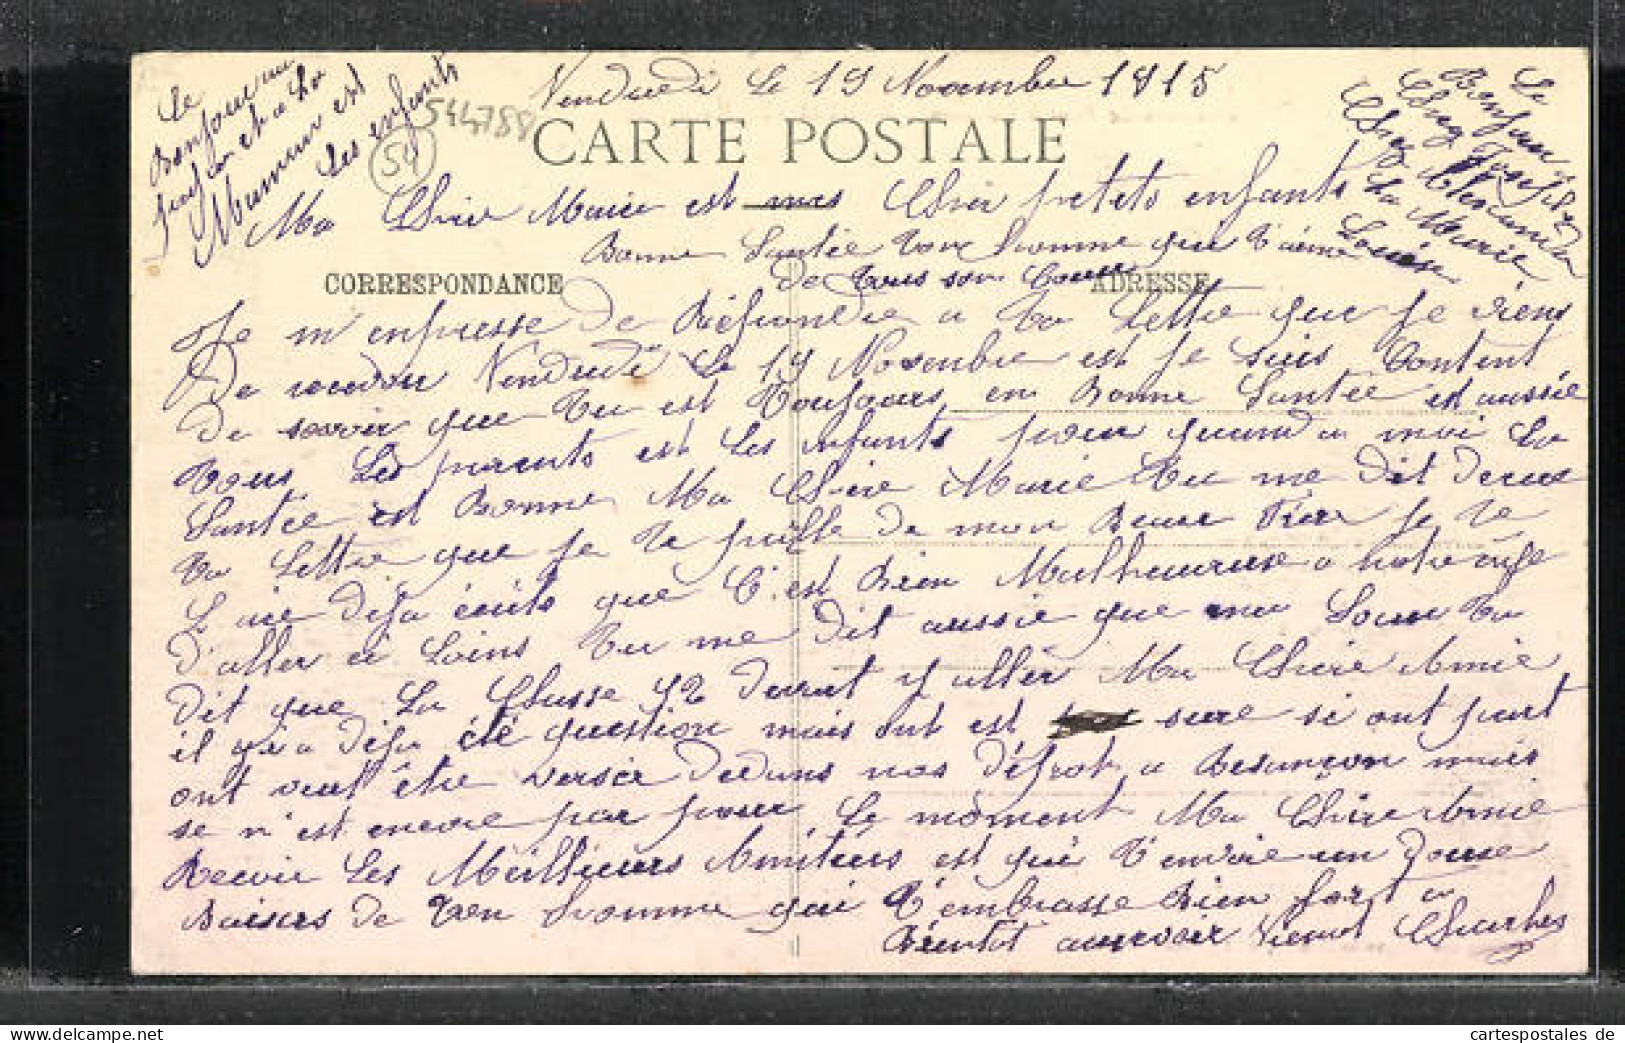 Le
Bonjour au
et a la
Maman est
Les enfants
544788
54
Vendredi Le 19 Novembre 1915
CARTE POSTALE
Le
Bonjour
Chez Joseph
Chez Alexandre
Chez La Marie
Louise
Ma Chère Marie est mes Cher petets enfants
Bonne Santée ton homme que t'aime
de tous son Coeur
CORRESPONDANCE
ADRESSE
Je m'enpresse de Répondre a ta Lettre que je viens
De recevoir Vendredi Le 19 Novembre est je suis Content
De savoir que tu est toujours en Bonne Santée est aussie
tous Les parents est Les enfants pour quand a moi La
Santée est Bonne Ma Chère Marie tu me dit dessus
ta Lettre que je te de mon Beau Frère je te
L'aie déja écrits que C'est Bien Malheureux a notre age
D'aller si Loins tu me dit aussie que ma Soeur ta
dit que La Classe 92 devait y allér Ma Chère Amie
il y a déja été question mais ont est sure si ont part
ont veut être verser dedans nos dépot a Besançon mais
se n'est encore par pour Le moment Ma Chère Amie
Recoir Les Meillieurs Amitiers est qui t'envoie un Douse
Baisers de ton homme qui t'embrasse Bien fort a
Bientot aurevoir Viennot Charles
cartespostales de